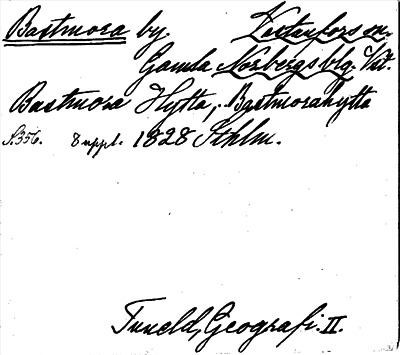 Bastmora by. Västanfors sn.
Gamla Norbergs blg. Vstm.
Bastmora Hytta, Bastmorahytta
S. 356. 8 uppl. 1828 Sthlm.
Tuneld, Geografi. II.